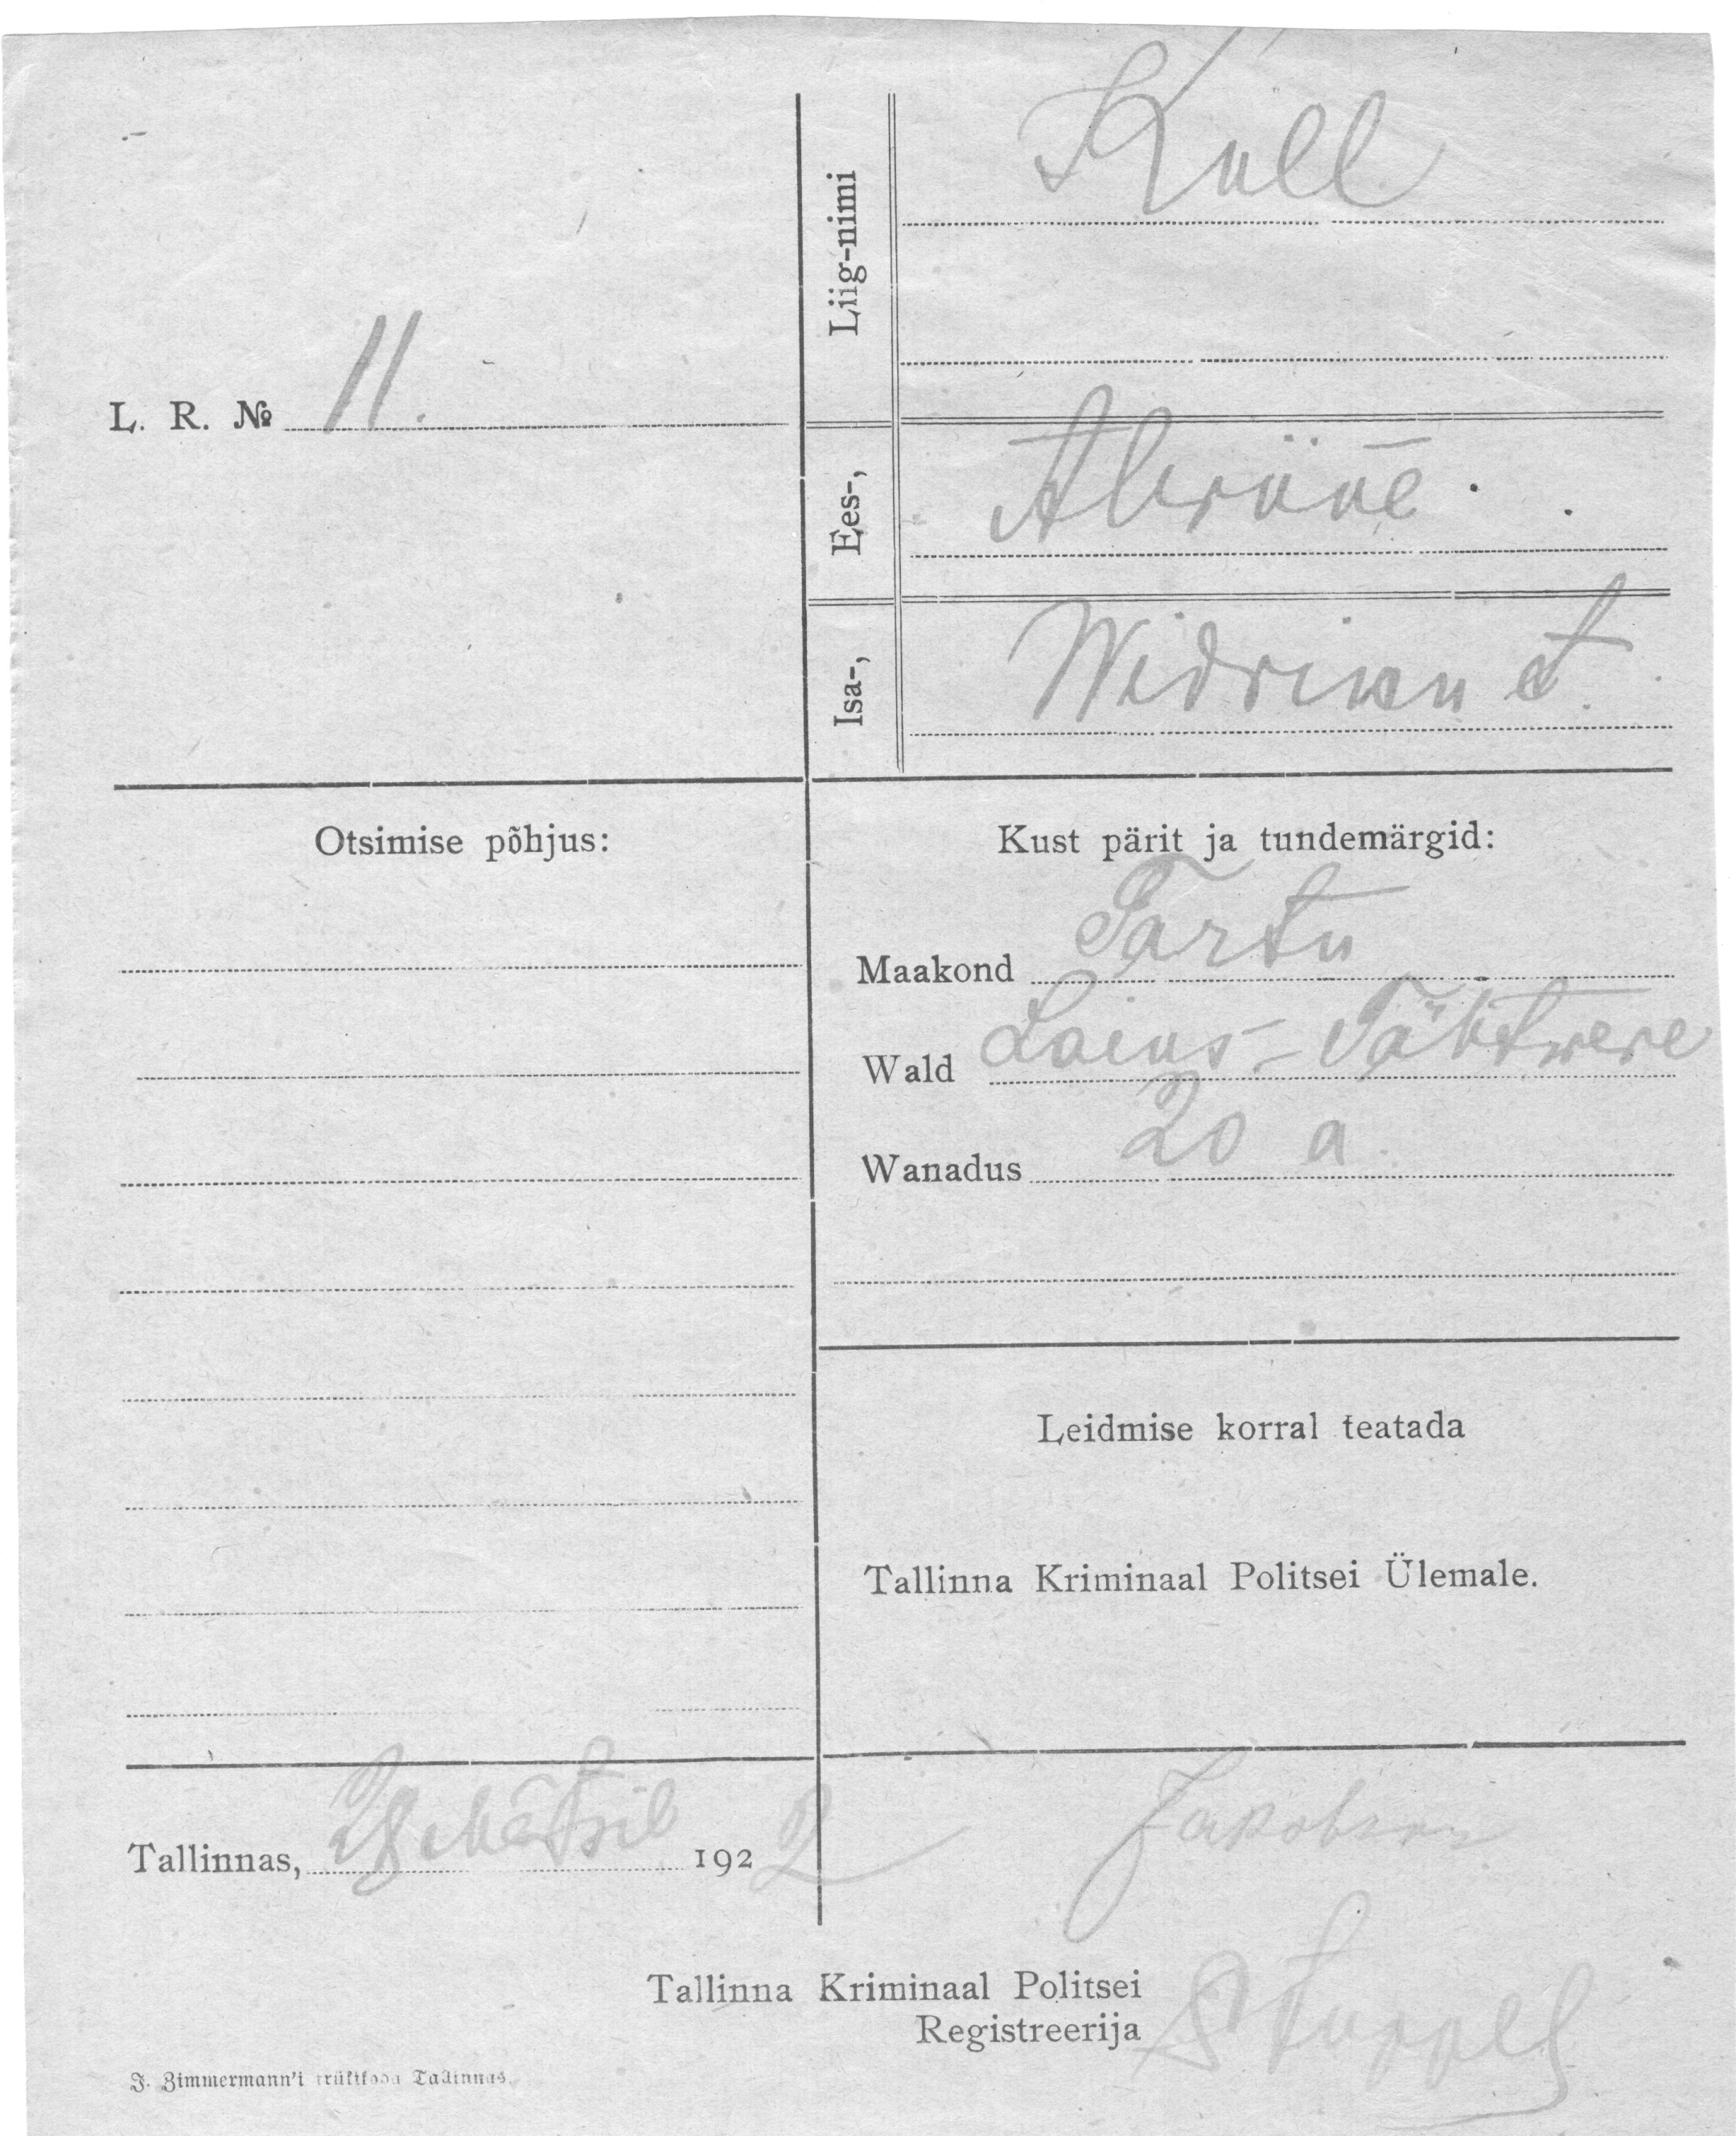 Liig-nimi Kull
L. R. № 11.
Ees-,
Isa-, Widriku t.
Otsimise põhjus:
Kust pärit ja tundemärgid:
Maakond Tartu
Wald Laius-Tähtwere
Wanadus 20 a.
Leidmise korral teatada
Tallinna Kriminaal Politsei Ülemale.
Tallinnas, 28 Märtsil 1922
Jakobson
Tallinna Kriminaal Politsei
Registreerija
J. Zimmermann'i trükikoda Tallinnas.